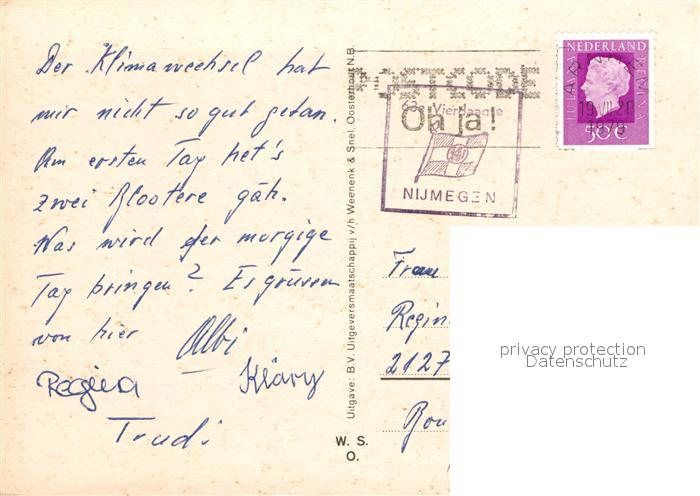 Der Klimawechsel hat
mir nicht so gut getan.
Am ersten Tag het's
zwei Blootere gäh.
Was wird der morgige
Tag bringen? Es grüssen
von hier Albi
Regina Kläry
Trudi
Uitgave: B.V. Uitgeversmaatschappij v/h Weenenk & Snel, Oosterhout N.B.
W. S.
O.
POSTCODE
Oh ja!
63e Vierdaagse
NIJMEGEN
NEDERLAND
JULIANA REGINA
50c
19 VII 20
1979
Frau
Regin
2127
Bou
privacy protection
Datenschutz